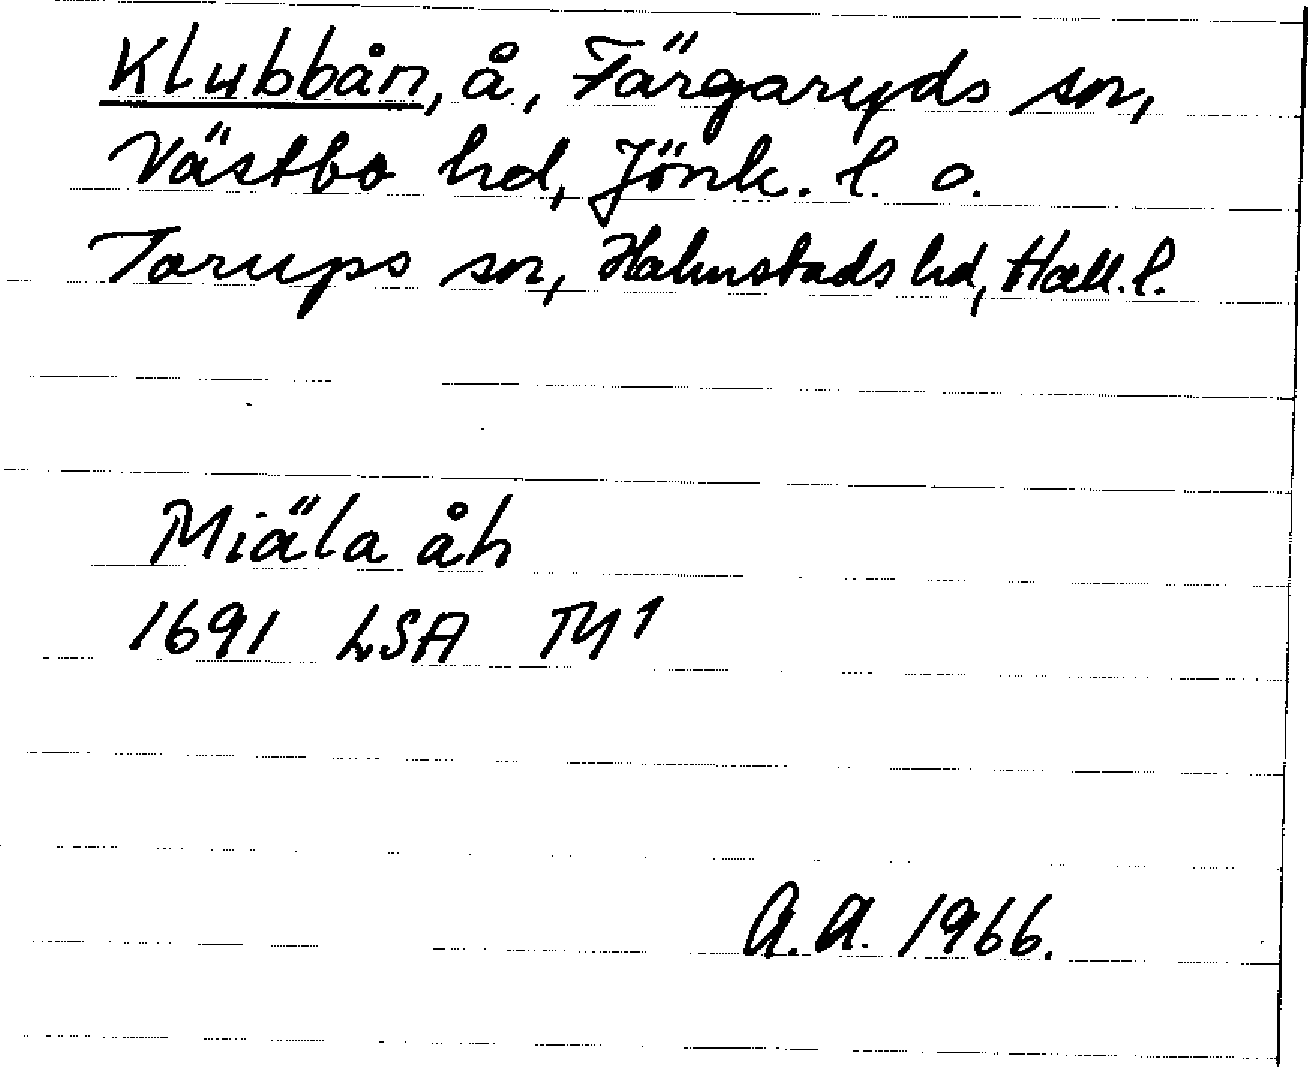 Klubbån, å, Färgaryds sn,
Västbo hd, Jönk. l. o.
Torups sn, Halmstads hd, Hall. l.
Miäla åh
1691 LSA M1
A.A. 1966.